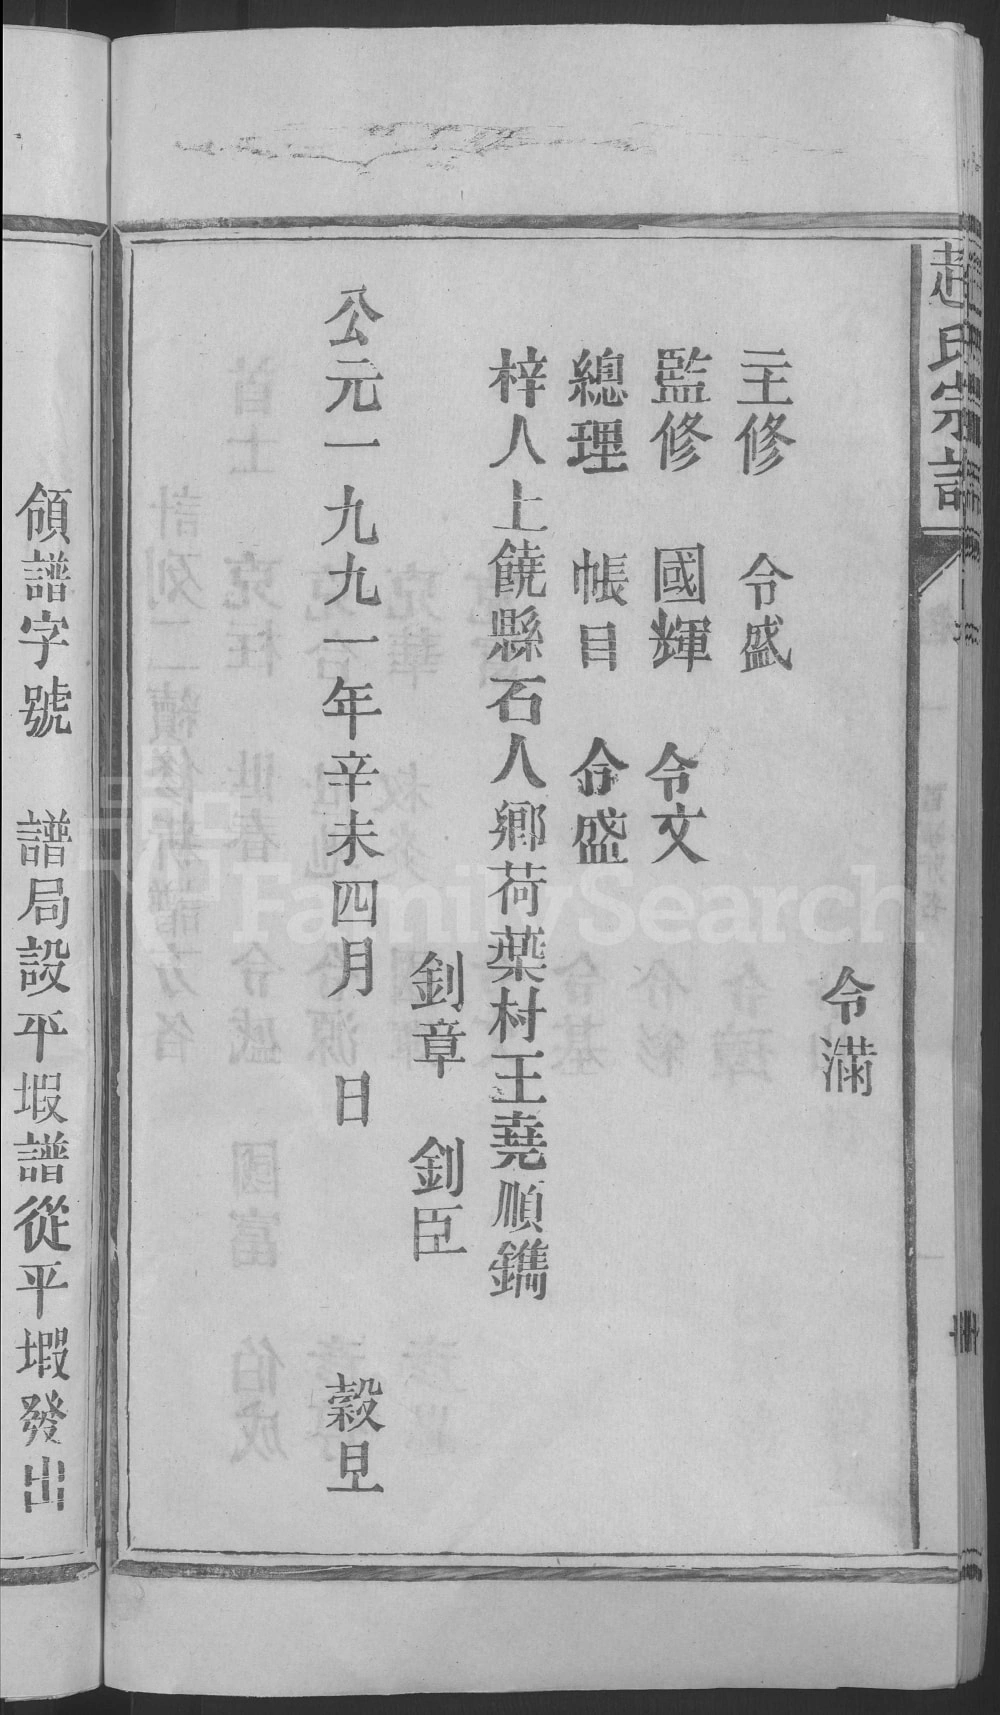 趙氏宗譜
令滿
主修 令盛
監修 國輝 令文
總理 帳目 令盛
梓人上饒縣石人鄉荷葉村王堯順鐫
釗章 釗臣
公元一九九一年辛未四月 日 穀旦
領譜字號 譜局設平塅譜從平塅發出
FamilySearch